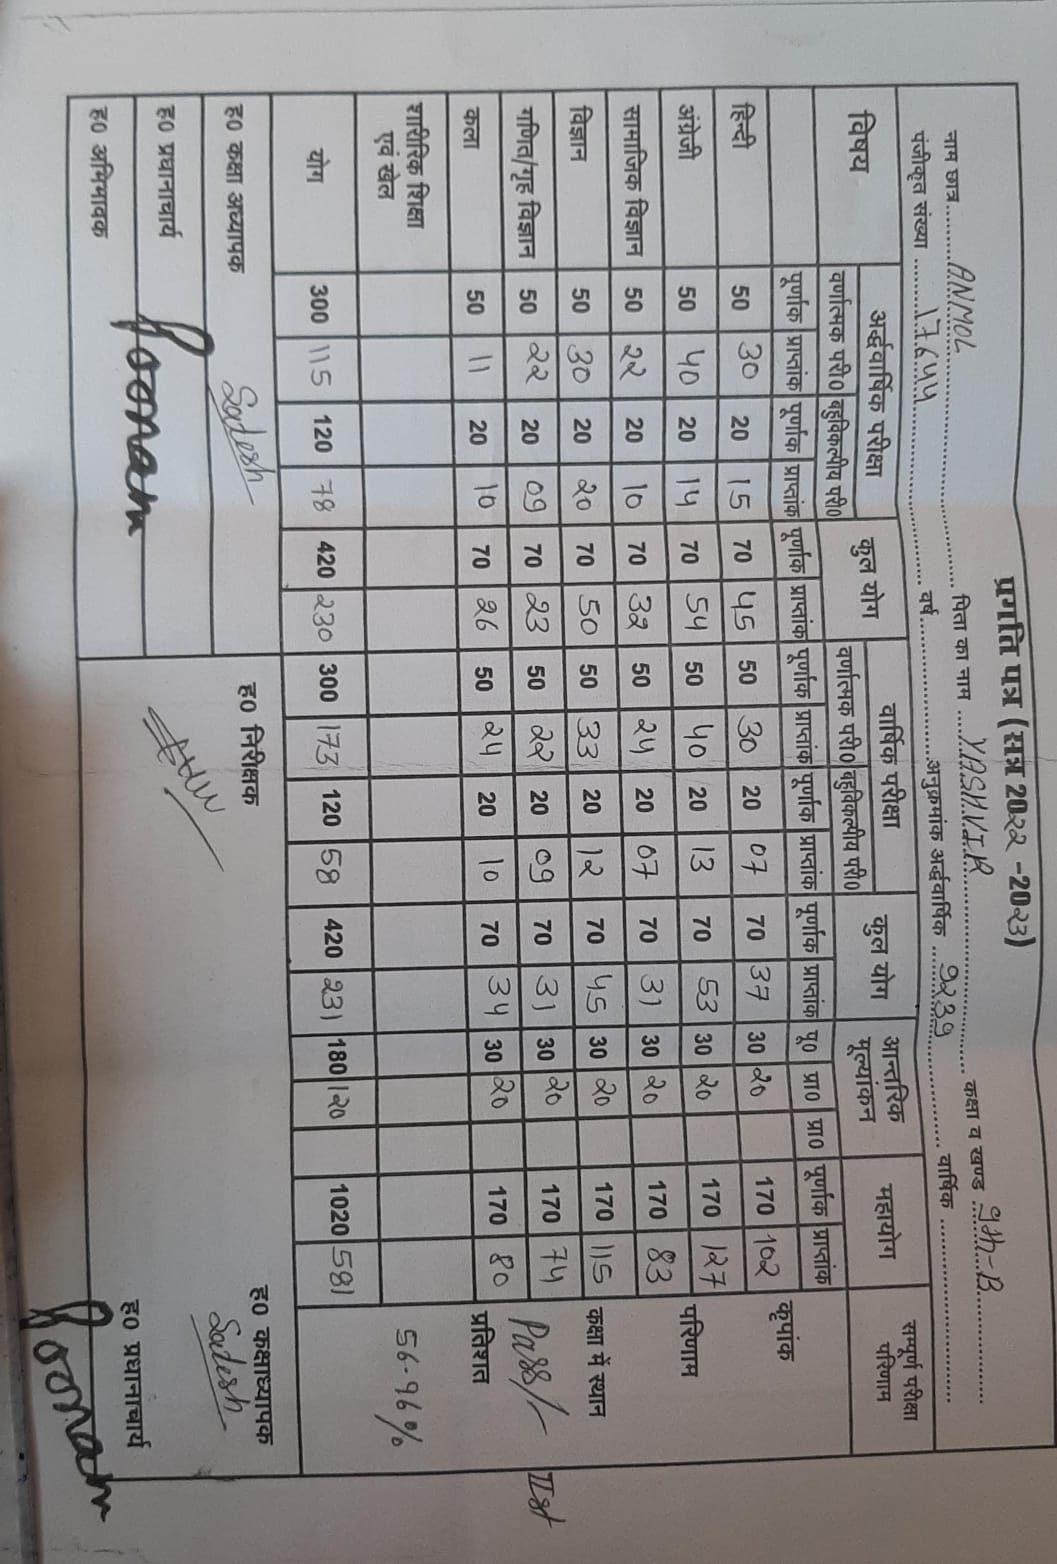 प्रगति पत्र (सत्र 2022 -2023)
नाम छात्र ANMOL पिता का नाम YASHVIR कक्षा व खण्ड 9th-B
पंजीकृत संख्या 17644 वर्ष अनुक्रमांक अर्द्धवार्षिक 9239 वार्षिक
विषय अर्द्धवार्षिक परीक्षा कुल योग वार्षिक परीक्षा कुल योग आन्तरिक मूल्यांकन महायोग सम्पूर्ण परीक्षा परिणाम
वर्णात्मक परी0 बहुविकल्पीय परी0 वर्णात्मक परी0 बहुविकल्पीय परी0
पूर्णांक प्राप्तांक पूर्णांक प्राप्तांक पूर्णांक प्राप्तांक पूर्णांक प्राप्तांक पूर्णांक प्राप्तांक पूर्णांक प्राप्तांक पू0 प्रा0 प्रा0 पूर्णांक प्राप्तांक
हिन्दी 50 30 20 15 70 45 50 30 20 07 70 37 30 20 170 102 कृपांक
अंग्रेजी 50 40 20 14 70 54 50 40 20 13 70 53 30 20 170 127 परिणाम
सामाजिक विज्ञान 50 22 20 10 70 32 50 24 20 07 70 31 30 20 170 83
विज्ञान 50 30 20 20 70 50 50 33 20 12 70 45 30 20 170 115 कक्षा में स्थान
गणित/गृह विज्ञान 50 22 20 09 70 23 50 22 20 09 70 31 30 20 170 74 Pass/- IIst
कला 50 11 20 10 70 26 50 24 20 10 70 34 30 20 170 80 प्रतिशत
शारीरिक शिक्षा एवं खेल 56.96%
योग 300 115 120 78 420 230 300 173 120 58 420 231 180 120 1020 581
ह0 कक्षा अध्यापक Sadesh ह0 निरीक्षक ह0 कक्षाध्यापक
Sadesh
ह0 प्रधानाचार्य ह0 प्रधानाचार्य
ह0 अभिभावक